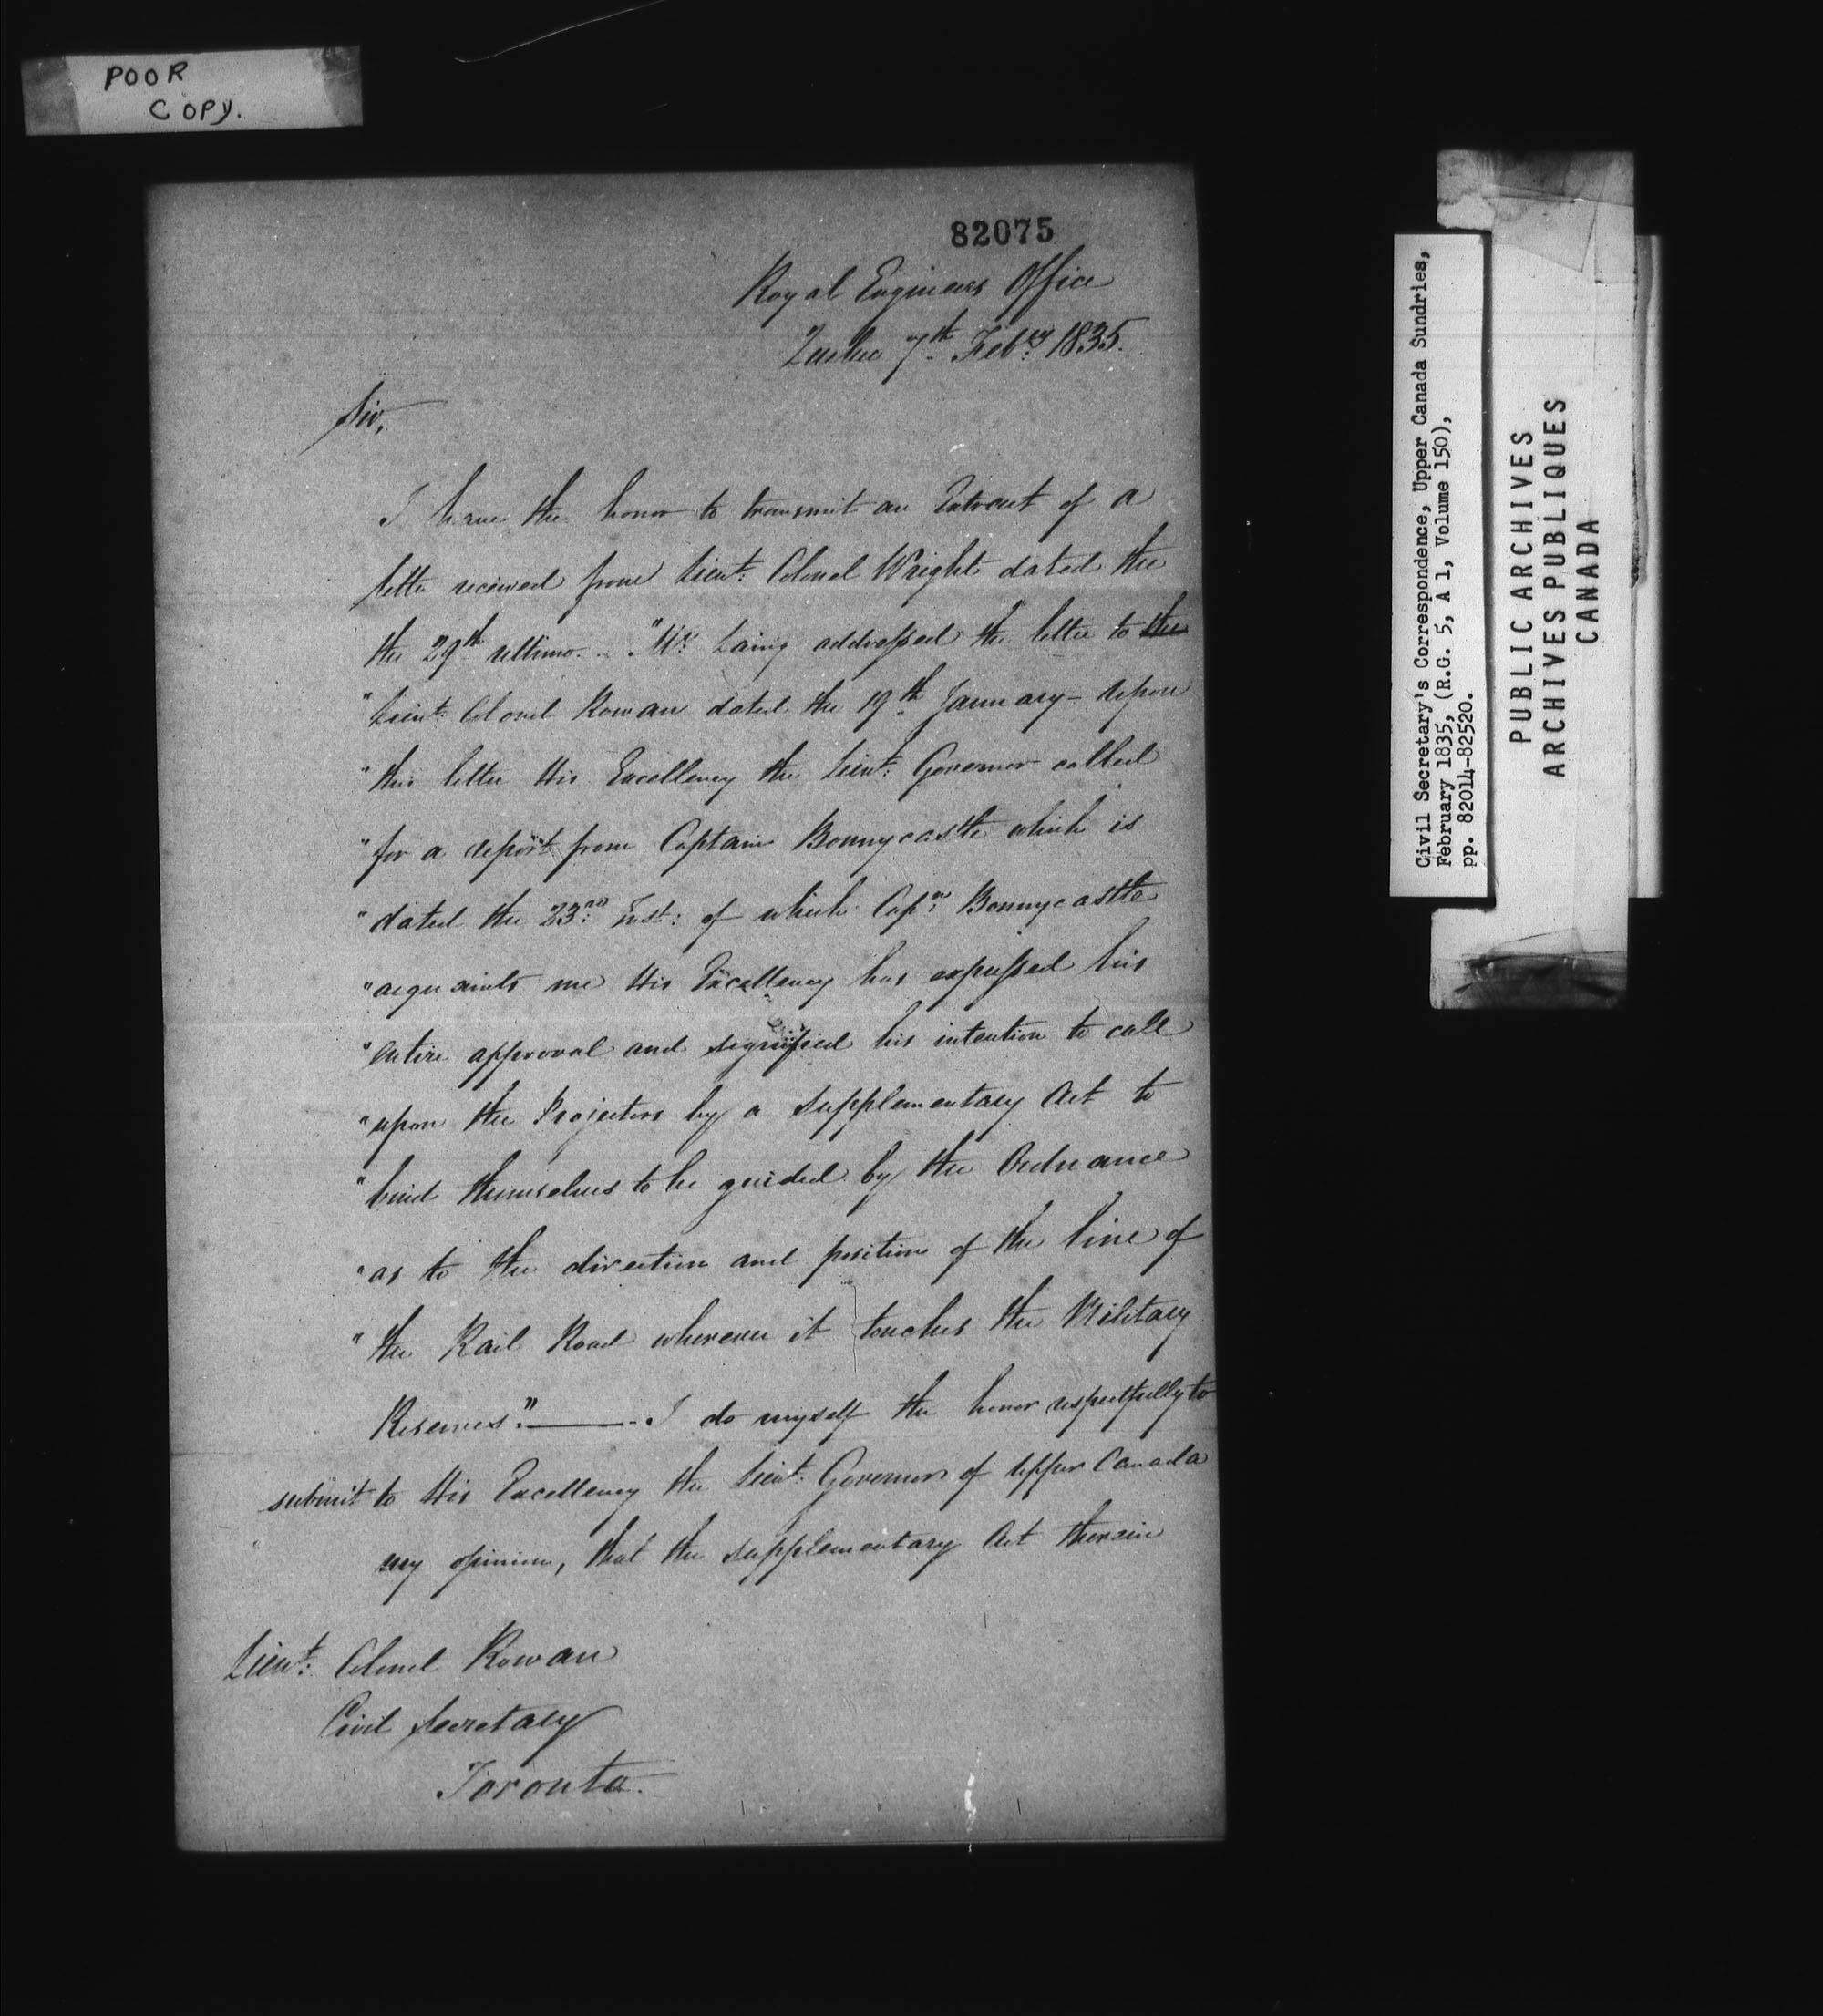 POOR
COPY.
82075
Royal Engineers Office
Quebec 7th Feby 1835.
Sir,
I have the honor to transmit an Extract of a
letter received from Lieut: Colonel Wright dated the
the 29th ultimo. "Mr Laing addressed the letter to the
"Lieut: Colonel Rowan dated the 19th January - Upon
"this letter His Excellency the Lieut: Governor called
"for a report from Captain Bonnycastle which is
"dated the 23rd Inst: of which Capn Bonnycastle
"acquaints me His Excellency has expressed his
"entire approval and signified his intention to call
"upon the Projectors by a Supplementary Act to
"bind themselves to be guided by the Ordnance
"as to the direction and position of the line of
"the Rail Road wherever it touches the Military
Reserves." ——— I do myself the honor respectfully to
submit to His Excellency the Lieut: Governor of Upper Canada
my opinion, that the Supplementary Act therein
Lieut: Colonel Rowan
Civil Secretary
Toronto.
Civil Secretary's Correspondence, Upper Canada Sundries,
February 1835, (R.G. 5, A 1, Volume 150),
pp. 82014-82520.
PUBLIC ARCHIVES
ARCHIVES PUBLIQUES
CANADA